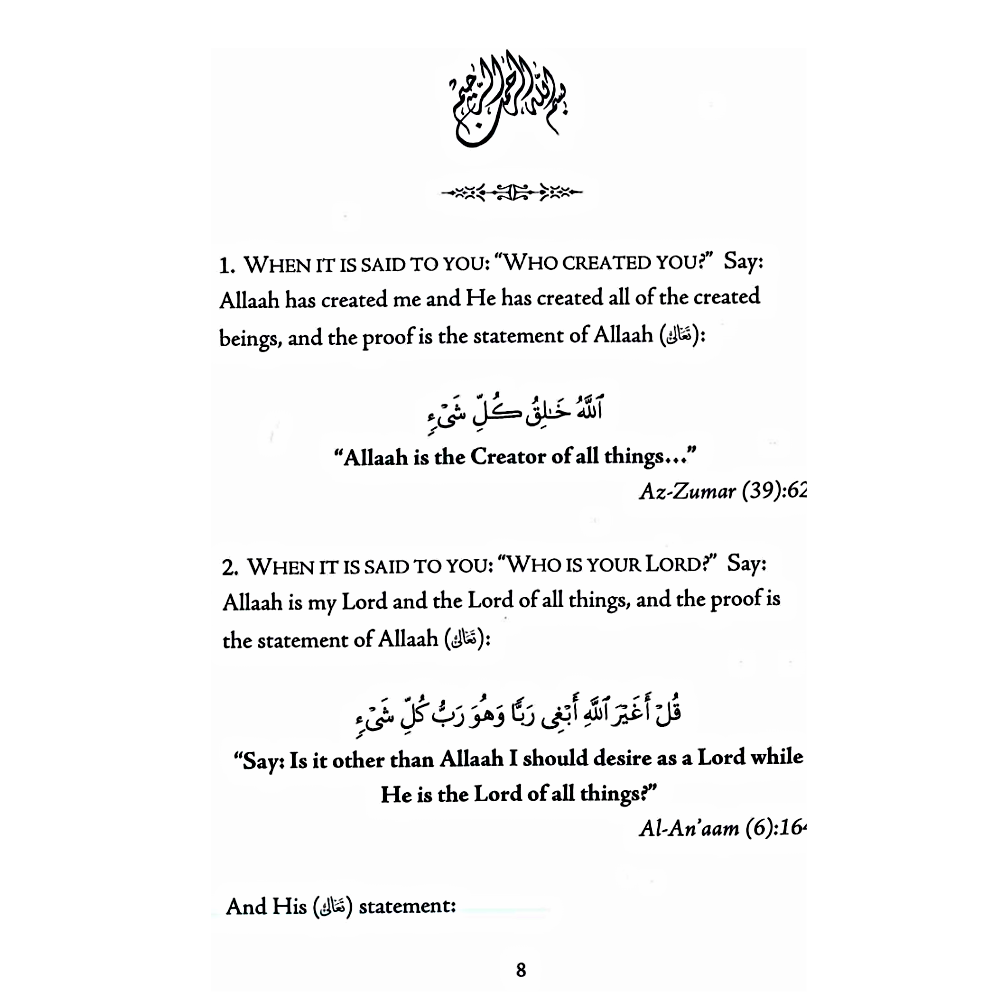 بسم الله الرحمن الرحيم
1. WHEN IT IS SAID TO YOU: “WHO CREATED YOU?” Say:
Allaah has created me and He has created all of the created
beings, and the proof is the statement of Allaah (تَعَالَىٰ):
ٱللَّهُ خَـٰلِقُ كُلِّ شَىْءٍ
“Allaah is the Creator of all things...”
Az-Zumar (39):62
2. WHEN IT IS SAID TO YOU: “WHO IS YOUR LORD?” Say:
Allaah is my Lord and the Lord of all things, and the proof is
the statement of Allaah (تَعَالَىٰ):
قُلْ أَغَيْرَ ٱللَّهِ أَبْغِى رَبًّا وَهُوَ رَبُّ كُلِّ شَىْءٍ
“Say: Is it other than Allaah I should desire as a Lord while
He is the Lord of all things?”
Al-An’aam (6):164
And His (تَعَالَىٰ) statement:
8